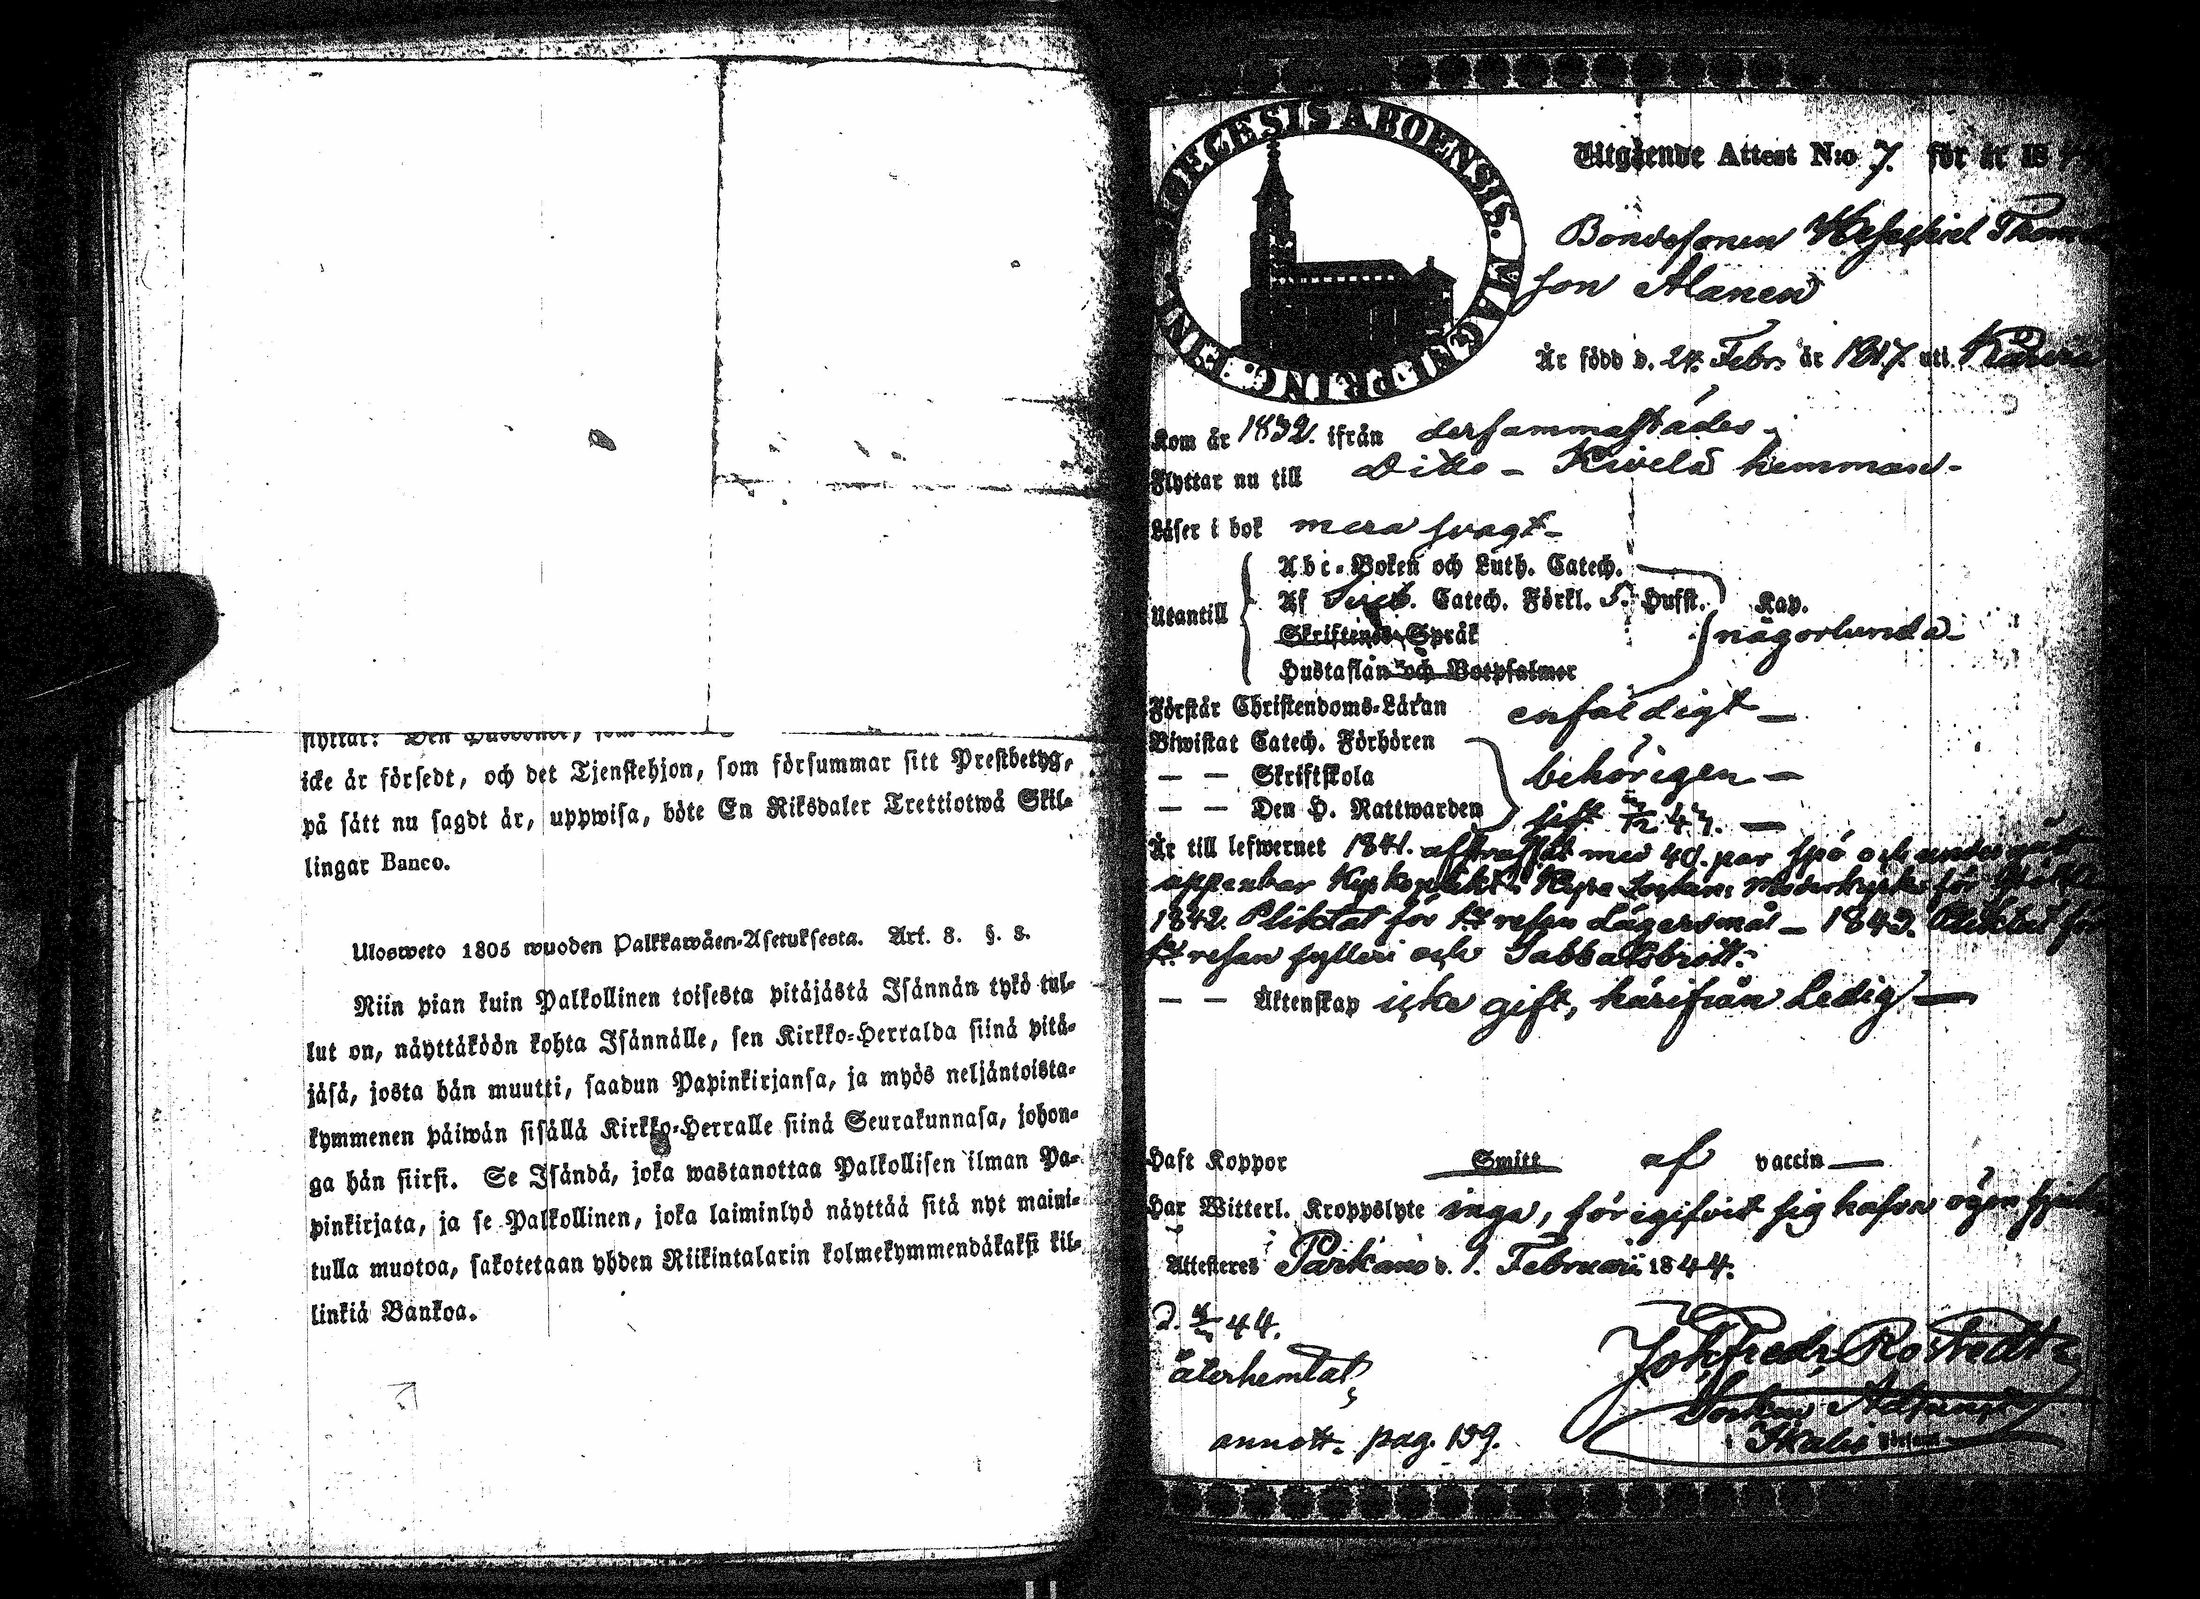 icke är försedt, och det Tjenstehjon, som försummar sitt Prestbetyg,
på sätt nu sagdt är, uppwisa, böte En Riksdaler Trettiotwå Skil-
lingar Banco.
Ulosweto 1805 wuoden Palkkawäen-Asetuksesta. Art. 8. §. 3.
Niin pian kuin Palkollinen toisesta pitäjästä Isännän tykö tul-
lut on, näyttäköön kohta Isännälle, sen Kirkko-Herralda siinä pitä-
jäsä, josta hän muutti, saadun Papinkirjansa, ja myös neljäntoista-
kymmenen päiwän sisällä Kirkko-Herralle siinä Seurakunnasa, johon-
ga hän siirsi. Se Isändä, joka wastanottaa Palkollisen ilman Pa-
pinkirjata, ja se Palkollinen, joka laiminlyö näyttää sitä nyt maini-
tulla muotoa, sakotetaan yhden Riikintalarin kolmekymmendäkaksi kil-
linkiä Bankoa.
DIOECESIS ABOENSIS. MAGNI PRINC. FINL.
Utgående Attest N:o 7. för år 18
Bondesonen
son Alanen
Är född d. 24. Febr. år 1817. uti
Kom år 1832. ifrån dersammastädes -
Flyttar nu till Ditto - Kivelä hemman -
Läser i bok mera svagt -
Utantill
Abc-Boken och Luth. Catech.
Af Catech. Förkl. 5. Hufst. Kap.
Skriftenes Språk någorlunda -
Hustaflan och Botpsalmer
Förstår Christendoms-Läran enfaldigt -
Biwistat Catech. Förhören
— — Skriftskola behörigen -
— — Den H. Nattwarden sist
Är till lefwernet 1841. afstraffat med 40. par spö och
uppenbar
1842. Pliktat för 1:a resan Lägersmål - 1843. Pliktat för
1:a resan fylleri och Sabbatsbrott.
— — Äktenskap icke gift, härifrån Ledig -
Haft Koppor Smitt af vaccin -
Har Witterl. Kroppslyte inga, föregifvit sig hafva ögon
Attesteres Parkano d. 1. Februarii 1844.
44.
återhemtat,
annott. pag. 159.
Joh. Fredr. Rostedt